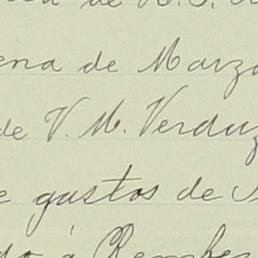 de
ena de Marzo
de V. M. Verduz
gastos de
á Rembe